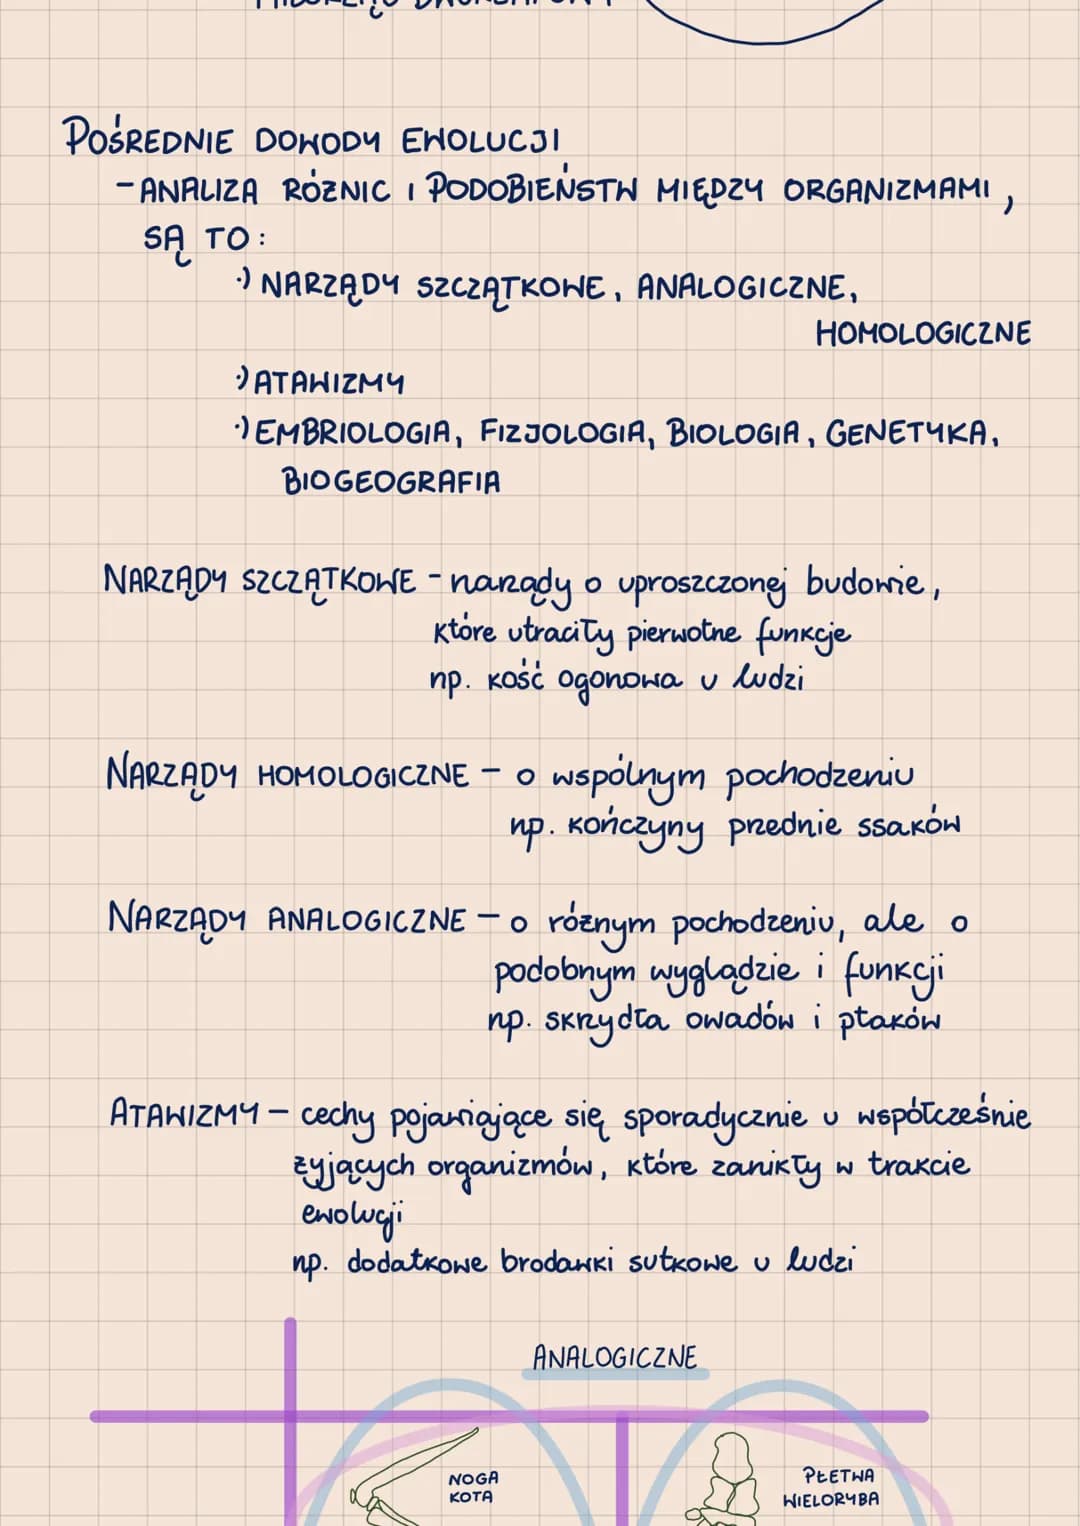 MIŁORZĄB DWUKLAPOWY
POŚREDNIE DOWODY EWOLUCJI
- ANALIZA RÓŻNIC I PODOBIEŃSTW MIĘDZY ORGANIZMAMI,
SĄ TO:
·) NARZĄDY SZCZĄTKOWE, ANALOGICZNE,
HOMOLOGICZNE
·) ATAWIZMY
·) EMBRIOLOGIA, FIZJOLOGIA, BIOLOGIA, GENETYKA,
BIOGEOGRAFIA
NARZĄDY SZCZĄTKOWE - narządy o uproszczonej budowie,
które utraciły pierwotne funkcje
np. kość ogonowa u ludzi
NARZĄDY HOMOLOGICZNE - o wspólnym pochodzeniu
np. kończyny przednie ssaków
NARZĄDY ANALOGICZNE - o różnym pochodzeniu, ale o
podobnym wyglądzie i funkcji
np. skrzydła owadów i ptaków
ATAWIZMY - cechy pojawiające się sporadycznie u współcześnie
żyjących organizmów, które zanikły w trakcie
ewolucji
np. dodatkowe brodawki sutkowe u ludzi
ANALOGICZNE
NOGA
KOTA
PŁETWA
WIELORYBA